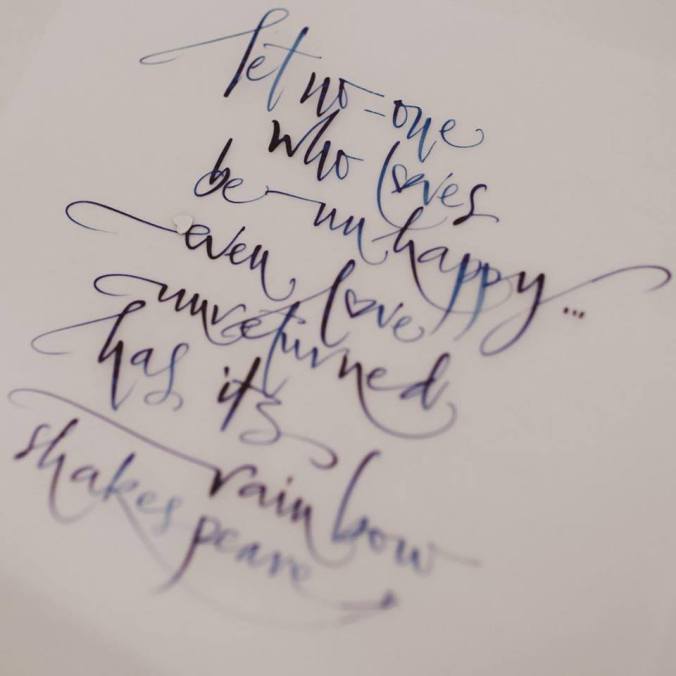 let no-one
who loves
be unhappy...
even love
unreturned
has its
rainbow
shakespeare